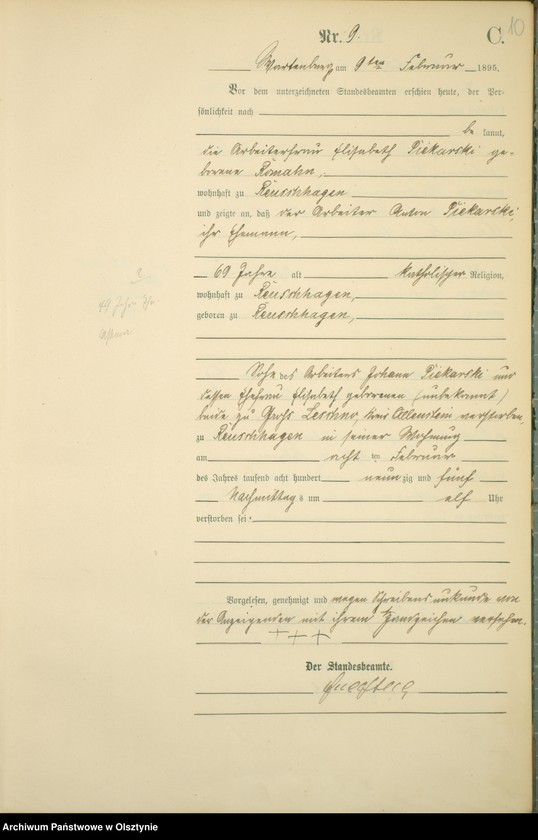 10
Nr. 9. C.
Wartenburg am 9ten Februar 1895.
Vor dem unterzeichneten Standesbeamten erschien heute, der Per-
sönlichkeit nach
be kannt,
die Arbeiterfrau Elisabeth Piekarski ge-
borene Romahn,
wohnhaft zu Reuschhagen
und zeigte an, daß der Arbeiter Anton Piekarski,
ihr Ehemann,
69 Jahre alt katholischer Religion,
wohnhaft zu Reuschhagen,
geboren zu Reuschhagen,
Sohn des Arbeiters Johann Piekarski und
dessen Ehefrau Elisabeth geborenen (unbekannt)
beide zu Groß Leschno, Kreis Allenstein verstorben,
zu Reuschhagen in seiner Wohnung
am acht ten Februar
des Jahres tausend acht hundert neunzig und fünf
Nachmittags um elf Uhr
verstorben sei.
Vorgelesen, genehmigt und wegen Schreibensunkunde von
der Anzeigenden mit ihrem Handzeichen versehen.
+ + +
Der Standesbeamte.
69 Jahre
Asthma
Archiwum Państwowe w Olsztynie